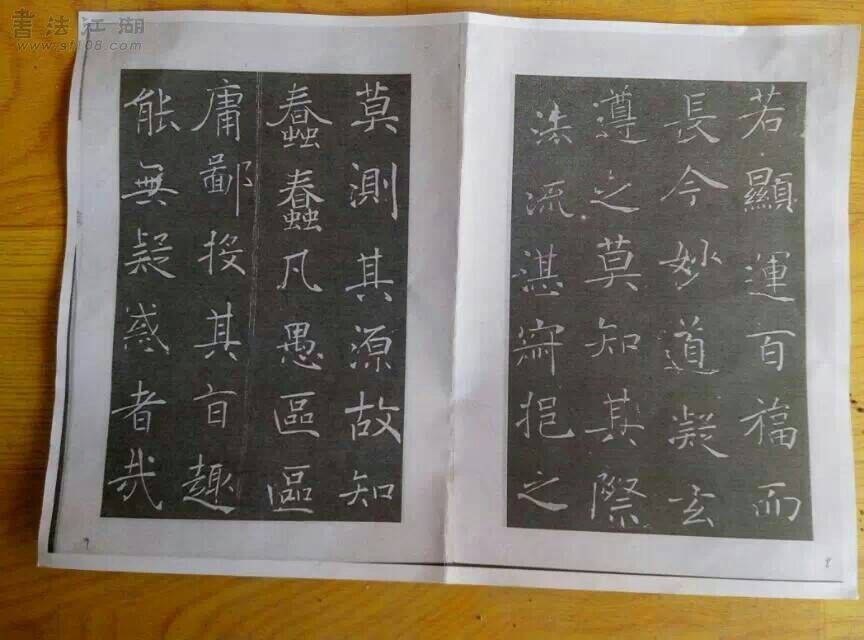 書法江湖
www.sf108.com
若顯運百福而
長今妙道凝玄
遵之莫知其際
法流湛寂挹之
莫測其源故知
蠢蠢凡愚區區
庸鄙投其旨趣
能無疑惑者哉